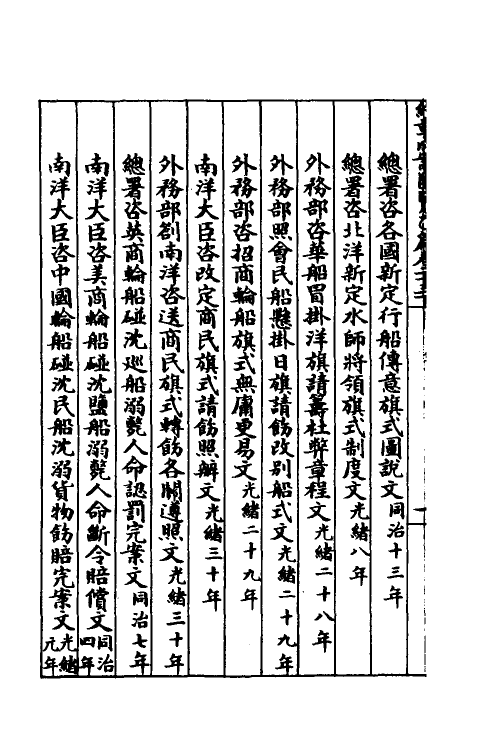 總署咨各國新定行船傳意旗式圖說文同治十三年
總署咨北洋新定水師將領旗式制度文光緒八年
外務部咨華船冒掛洋旗請籌杜弊章程文光緒二十八年
外務部照會民船懸掛日旗請飭改別船式文光緒二十九年
外務部咨招商輪船旗式無庸更易文光緒二十九年
南洋大臣咨改定商民旗式請飭照辦文光緒三十年
外務部劄南洋咨送商民旗式轉飭各關遵照文光緒三十年
總署咨英商輪船碰沈巡船溺斃人命認罰完案文同治七年
南洋大臣咨美商輪船碰沈鹽船溺斃人命斷令賠償文同治四年
南洋大臣咨中國輪船碰沈民船沈溺貨物飭賠完案文光緒元年